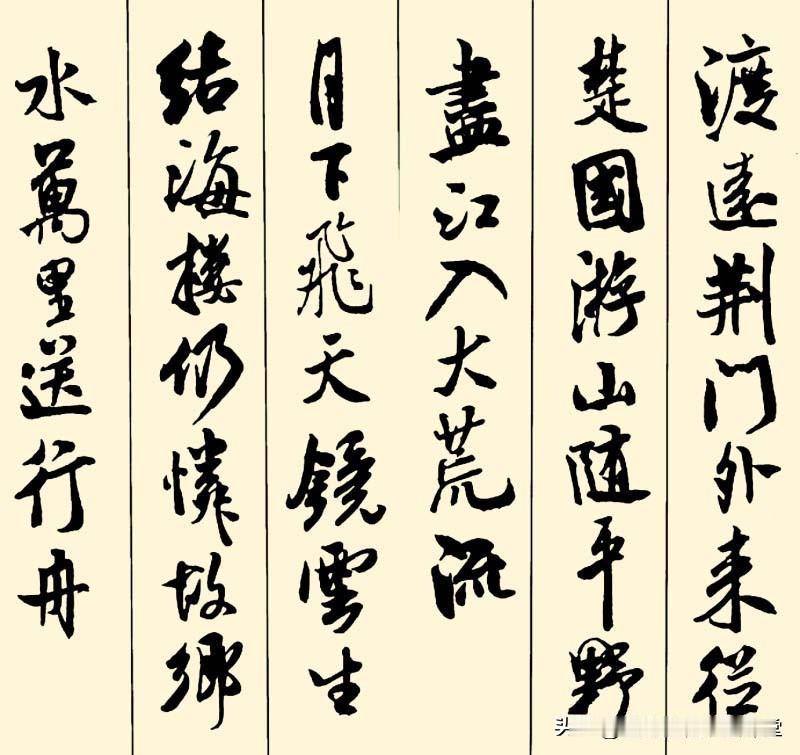 渡遠荆門外来從
楚國游山随平野
盡江入大荒流
月下飛天鏡雲生
結海樓仍憐故鄉
水萬里送行舟